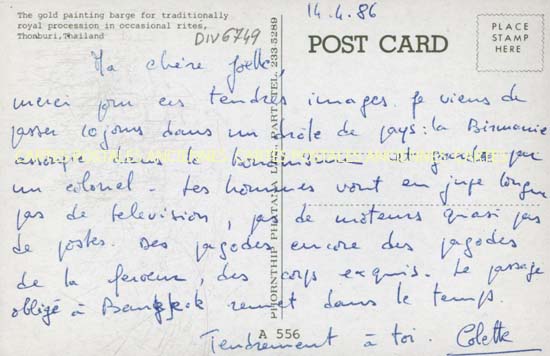 The gold painting barge for traditionally
royal procession in occasional rites,
Thonburi, Thailand
DIV6749
14.4.86
POST CARD
PLACE
STAMP
HERE
PHORNTHIP PHATANA LTD., PART. TEL. 233 5289
Ma chère Joëlle,
merci pour ces tendres images. Je viens de
passer 10 jours dans un drôle de pays : la Birmanie
dans le bouddhisme et par
un colonel - Les hommes vont en jupe longue
pas de television, pas de moteurs quasi pas
de postes. Des pagodes encore des pagodes
de la ferveur, des corps exquis. Le passage
obligé à Bangkok remet dans le temps.
Tendrement à toi. Colette
A 556